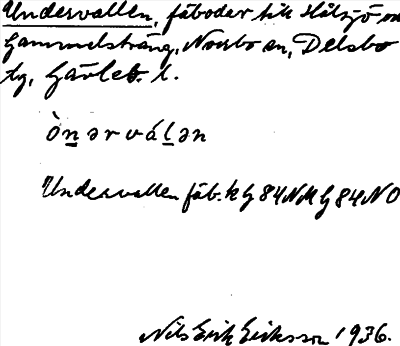 Undervallen, fäbodar till Hålsjö o
Gammelsträng, Norrbo sn, Delsbo
tg, Gävleb. l.
ò̀n̲ərvál̲ən
Undervallen fäb. k G 84 NV G 84 NO
Nils Erik Eriksson 1936.